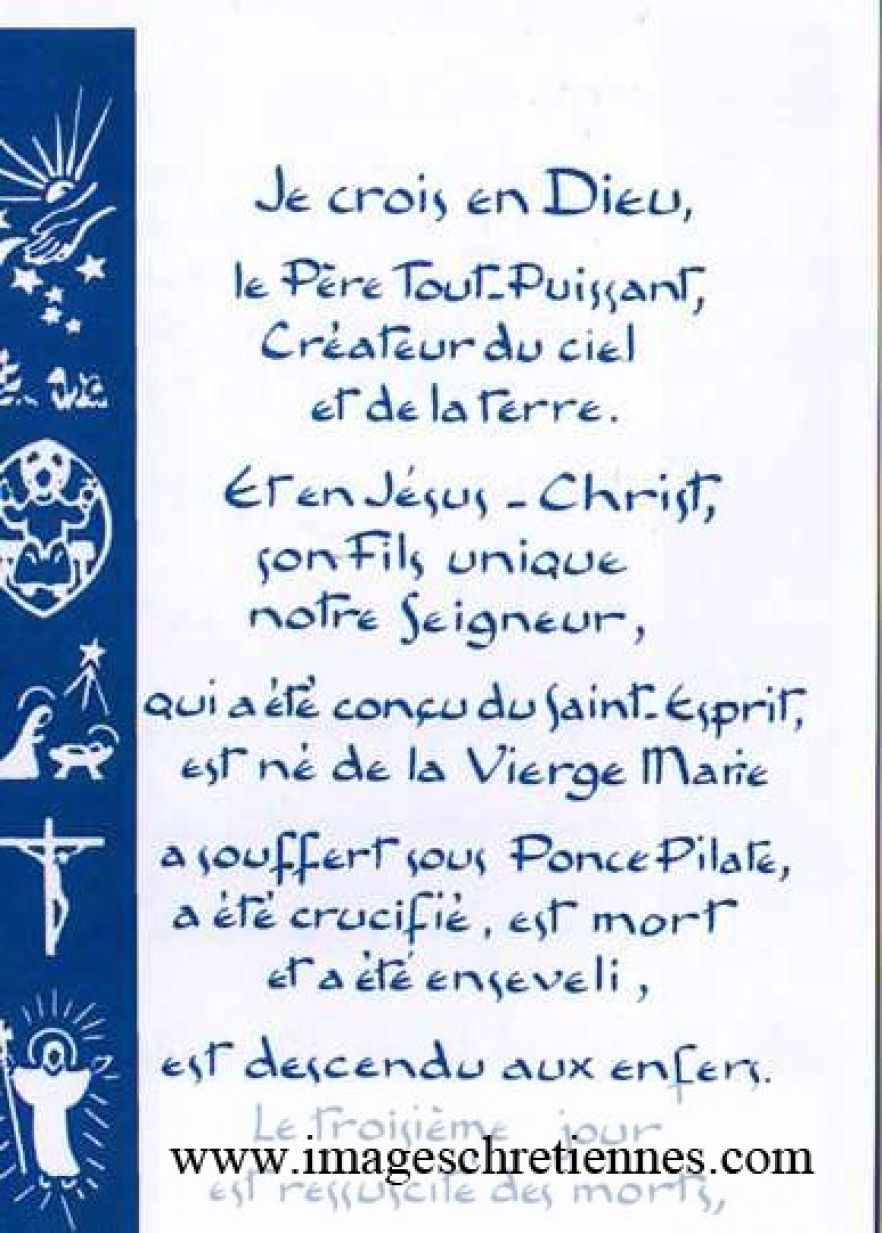 Je crois en Dieu,
le Père Tout-Puissant,
Créateur du ciel
et de la terre.
Et en Jésus-Christ,
son Fils unique
notre Seigneur,
qui a été conçu du Saint-Esprit,
est né de la Vierge Marie
a souffert sous Ponce Pilate,
a été crucifié, est mort
et a été enseveli,
est descendu aux enfers.
Le troisième jour
www.imageschretiennes.com
est ressuscité des morts,